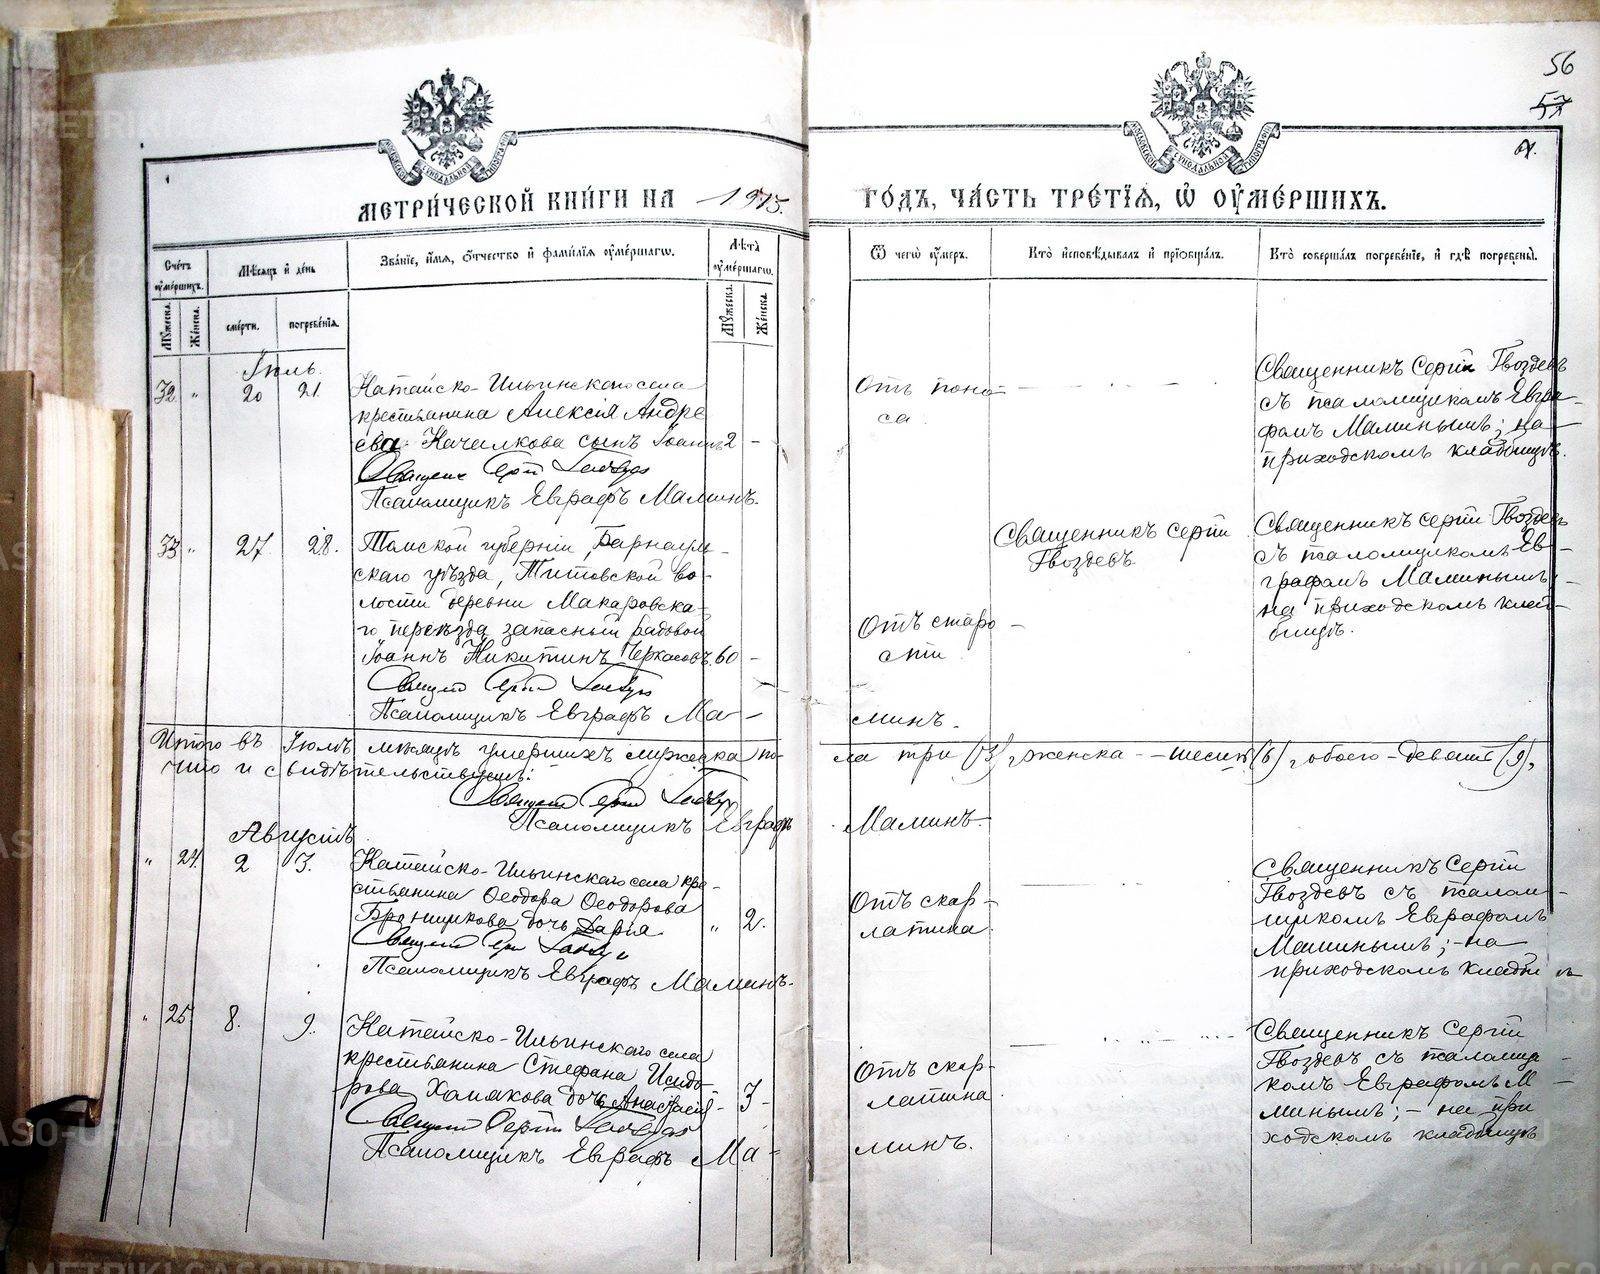 56
57
МЕТРИ́ЧЕСКОЙ КНИ́ГИ НА 1915.
ГО́ДЪ, ЧА́СТЬ ТРЕ́ТІѦ, Ѡ҆ ОУ҆МЕ́РШИХЪ.
Сче́тъ оу҆ме́ршихъ.
Мѣ́сѧцъ и҆ де́нь
Зва́ніе, и҆́мѧ, ѻ҆́тчество и҆ фами́лїѧ оу҆ме́ршагѡ.
Лѣ́та оу҆ме́ршагѡ.
Ѿ чегѡ̀ оу҆́меръ.
Кто̀ и҆сповѣ́дывалъ и҆ прїѻбща́лъ.
Кто̀ соверша́лъ погребе́нїе, и҆ гдѣ̀ погребены̀.
Му́жеска.
Же́нска.
сме́рти.
погребе́нїѧ.
Му́жеска.
Же́нска.
Іюль.
32 " 20 21 Катайско-Ильинскаго села
крестьянина Алексія Андре
ева Качалкова сынъ Іоаннъ 2 -
Священ Сергій Гвоздевъ
Псаломщикъ Евграфъ Маминъ.
Отъ поно-
са.
Священникъ Сергій Гвоздевъ
съ псаломщикомъ Евгра-
фомъ Маминымъ; на
приходскомъ кладбищѣ.
33 " 27 28. Томской губерніи, Барнауль-
скаго уѣзда, Титовской во-
лости деревни Макаровска-
го переѣзда запасный рядовой
Іоаннъ Никитинъ Черкасовъ 60 -
Священ Сергій Гвоздевъ
Псаломщикъ Евграфъ Ма-
минъ.
Отъ старо-
сти
Священникъ Сергій
Гвоздевъ.
Священникъ Сергій Гвоздевъ
съ псаломщикомъ Ев-
графомъ Маминымъ
на приходскомъ клад-
бищѣ.
Итого въ Іюлѣ мѣсяцѣ умершихъ мужеска по-
ла три (3), женска - шесть (6), обоего - девять (9),
что и свидѣтельствуемъ:
Священ Сергій Гвоздевъ
Псаломщикъ Евграфъ
Маминъ.
Августъ.
" 24. 2 3. Катайско-Ильинскаго села кре-
стьянина Ѳеодора Ѳеодорова
дочь Дарія " 2.
Священ Сергій Гвоздевъ
Псаломщикъ Евграфъ Маминъ.
Отъ скар-
латина.
Священникъ Сергій
Гвоздевъ съ псалом-
щикомъ Евграфомъ
Маминымъ; - на
приходскомъ кладби
" 25. 8. 9. Катайско-Ильинскаго села
крестьянина Стефана Исидо-
рова Хомякова дочь Анастасія - 3 -
Священ Сергій Гвоздевъ
Псаломщикъ Евграфъ Ма-
минъ.
Отъ скар-
латина
Священникъ Сергій
Гвоздевъ съ псаломщи-
комъ Евграфомъ М
минымъ; - на при
ходскомъ кладбищѣ